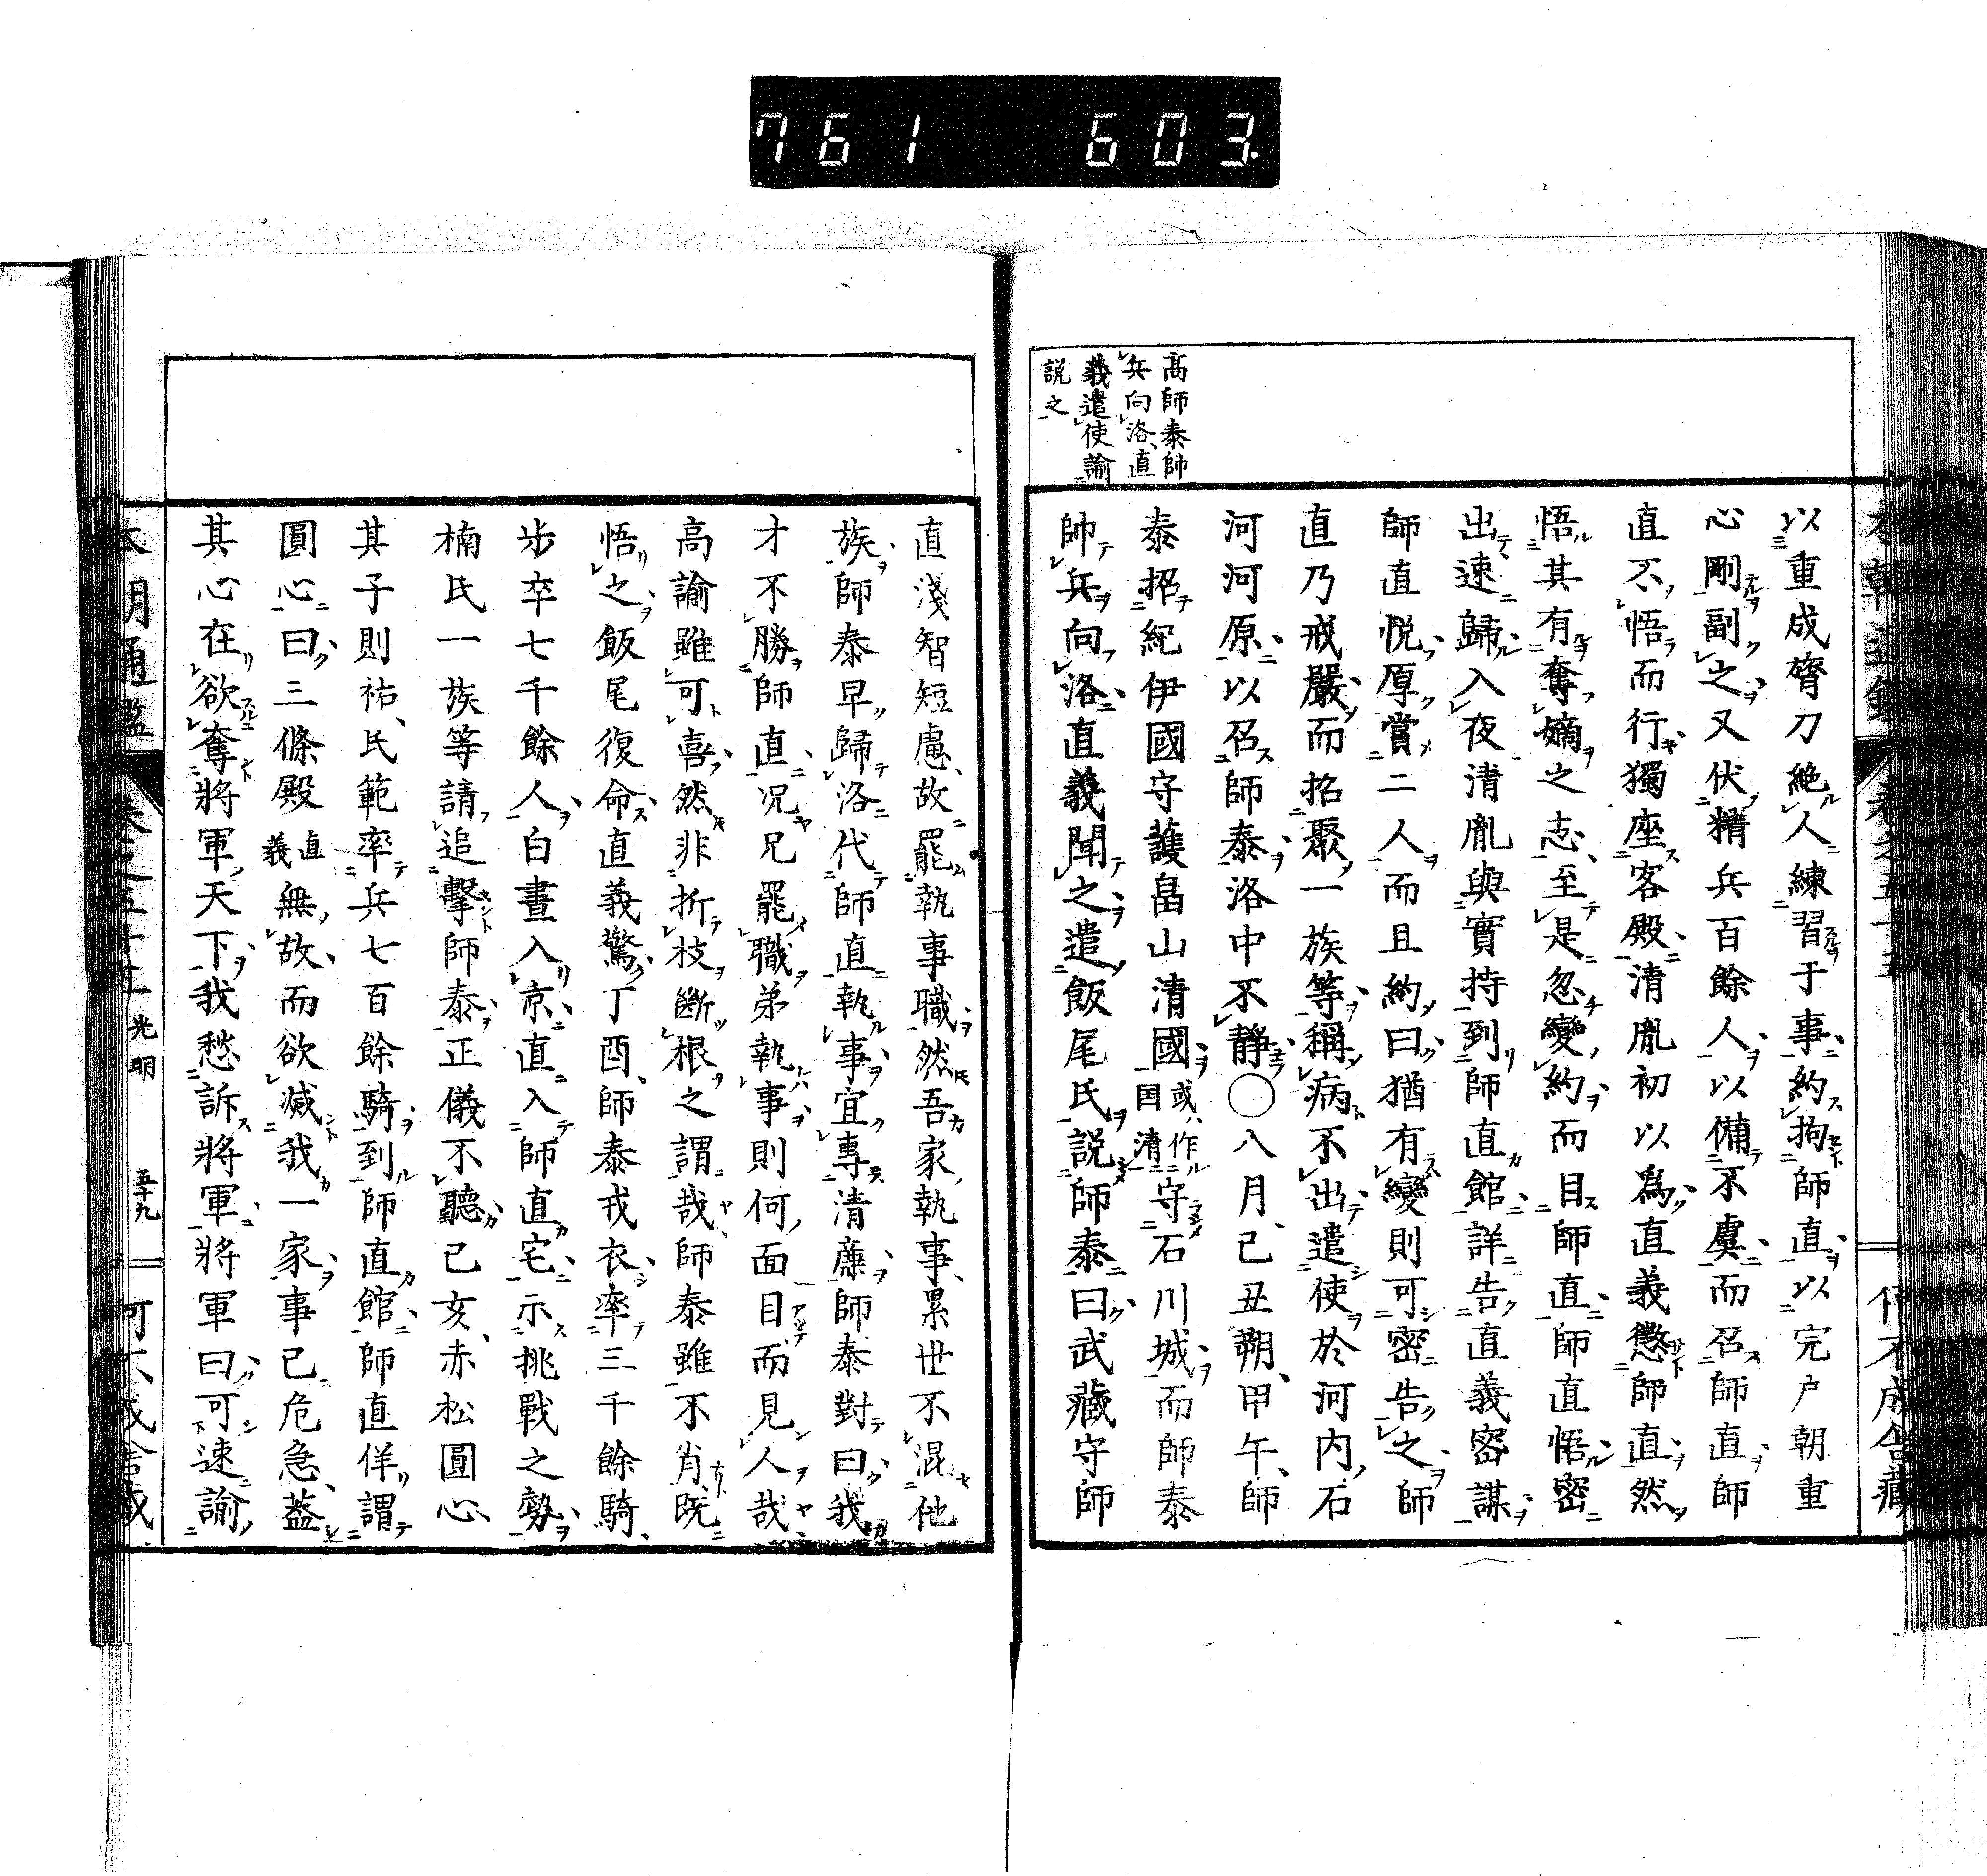 761 603.
高師泰帥
兵向洛直
義遣使諭
説之
以重成膂刀絶人練習于事約拘師直以完戸朝重
心剛副之又伏精兵百餘人以備不虞而召師直師
直不悟而行獨座客殿清胤初以爲直義懲師直然
悟其有奪嫡之志至是忽變約而目師直師直悟密
出速歸入夜清胤與實持到師直館詳告直義密謀
師直悦厚賞二人而且約曰猶有變則可密告之師
直乃戒嚴而招聚一族等稱病不出遣使於河内石
河河原以召師泰洛中不靜○八月己丑朔甲午師
泰招紀伊國守護畠山清國或作国清守石川城而師泰
帥兵向洛直義聞之遣飯尾氏説師泰曰武藏守師
直淺智短慮故罷執事職然吾家執事累世不混他
族師泰早歸洛代師直執事宜專清廉師泰對曰我
才不勝師直况兄罷職弟執事則何面目而見人哉
高諭雖可喜然非折枝斷根之謂哉師泰雖不肖既
悟之飯尾復命直義驚丁酉師泰戎衣率三千餘騎
步卒七千餘人白晝入京直入師直宅示挑戰之勢
楠氏一族等請追擊師泰正儀不聽己亥赤松圓心
其子則祐氏範率兵七百餘騎到師直館師直佯謂
圓心曰三條殿直義無故而欲滅我一家事已危急蓋
其心在欲奪將軍天下我愁訴將軍將軍曰可速諭
本朝通鑑 卷之五十五 光明 五十九 何不成舎藏